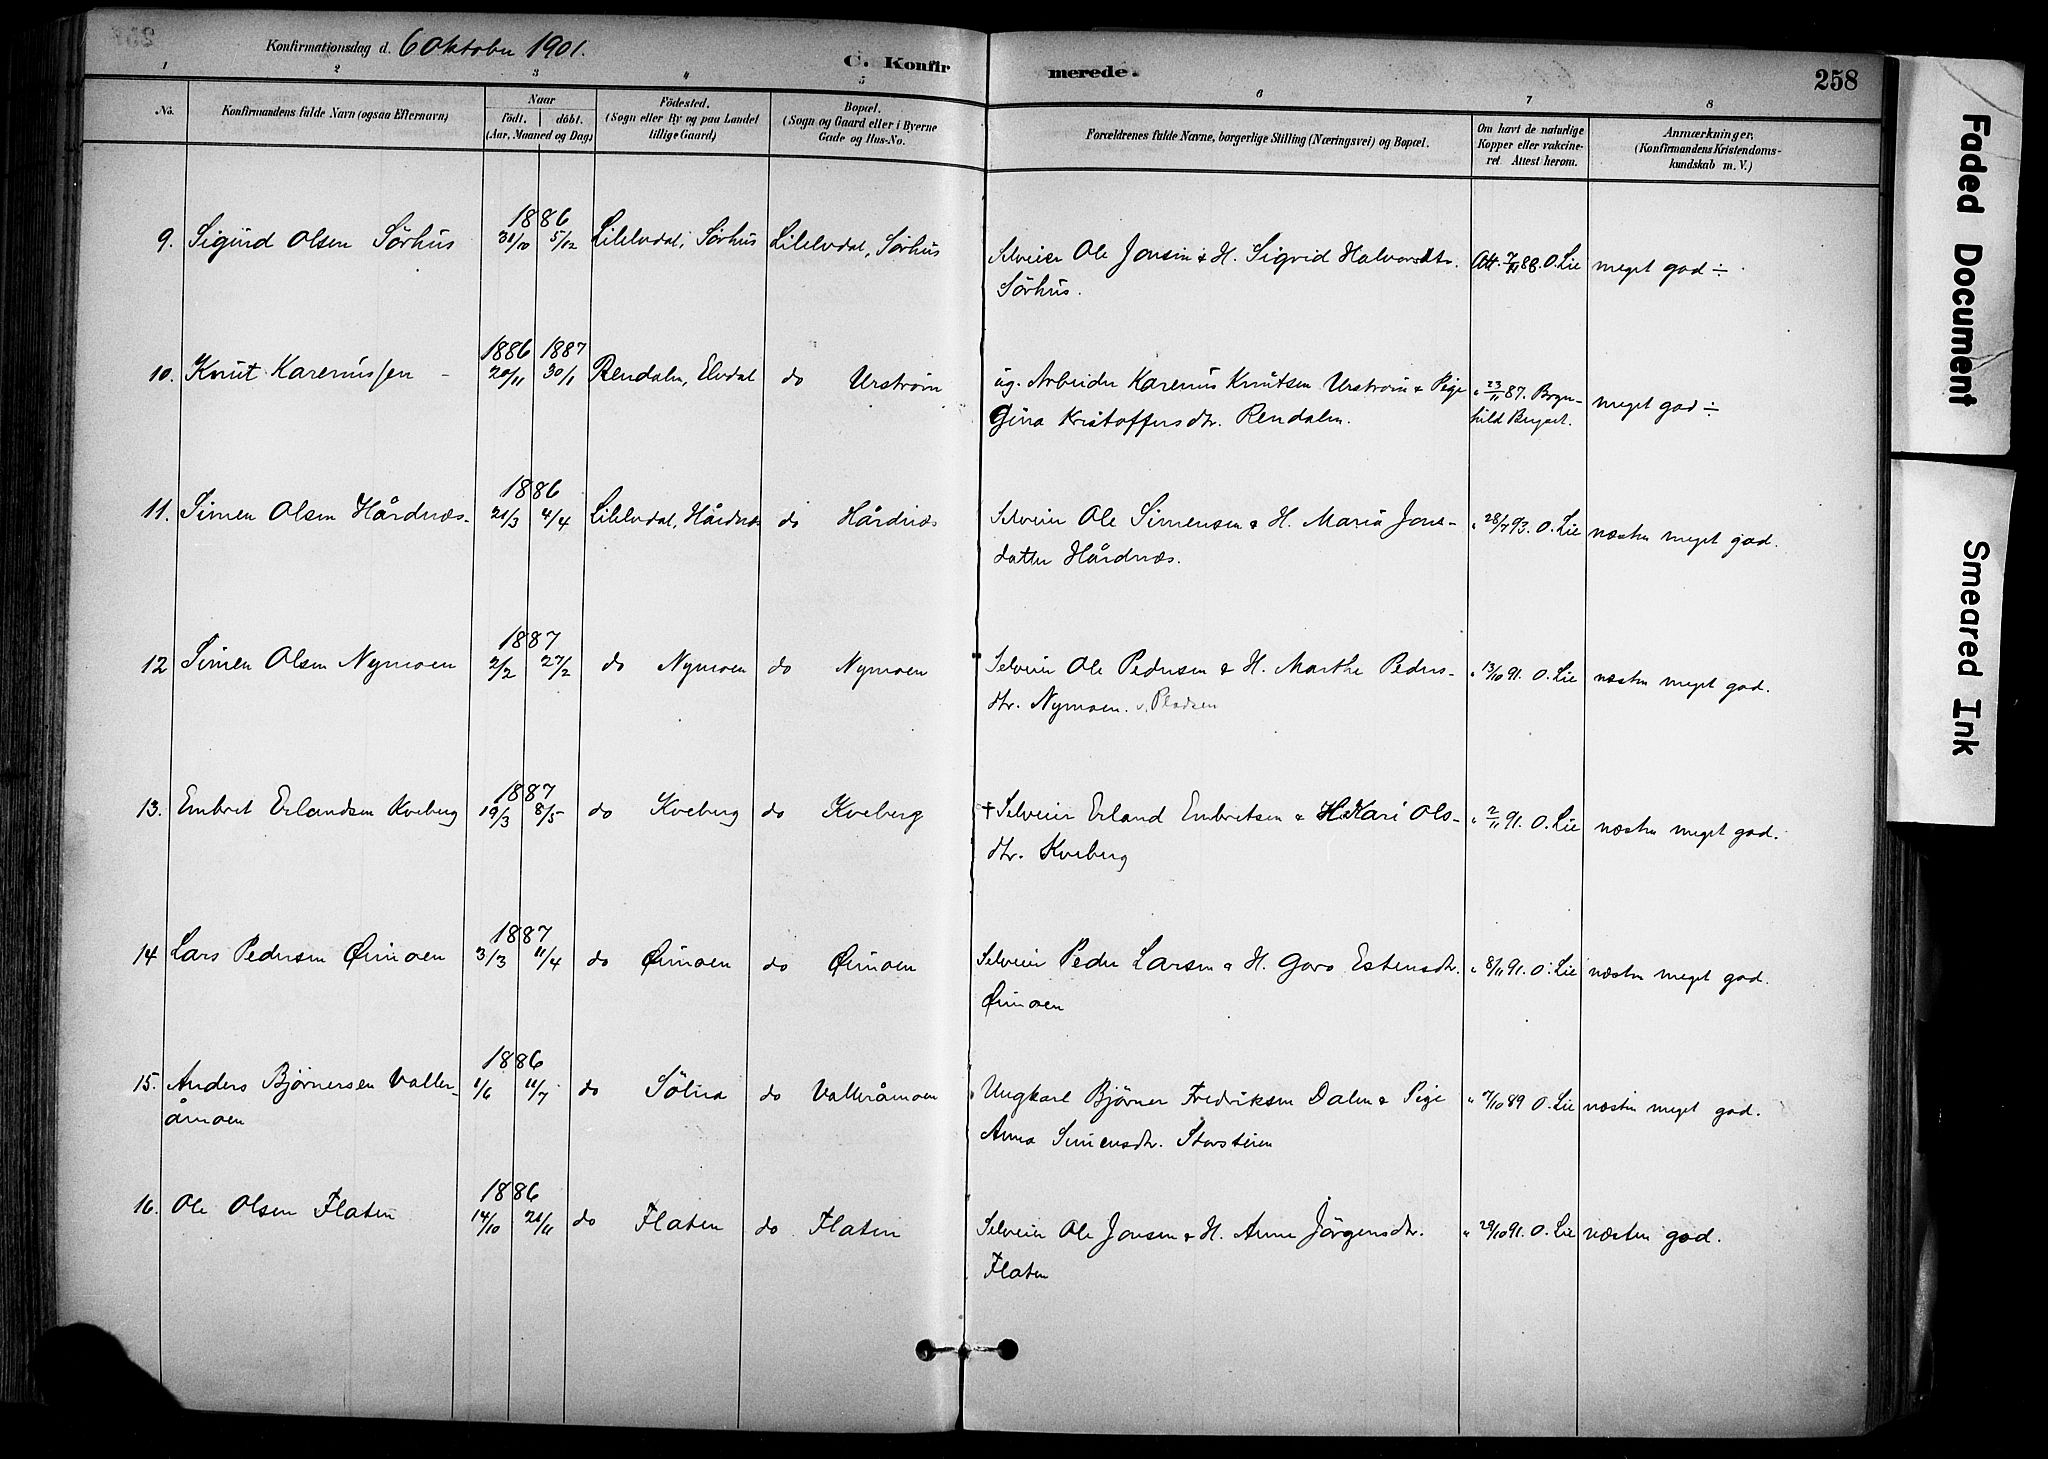 Konfirmationsdag d. 6 Oktober 1901.
C. Konfirmerede.
258
1 2 3 4 5 6 7 8
No.
Konfirmandens fulde Navn (ogsaa Efternavn)
Naar
födt. döbt.
(Aar, Maaned og Dag)
Födested.
(Sogn eller By og paa Landet
tillige Gaard)
Bopæl.
(Sogn og Gaard eller i Byerne
Gade og Hus-No.
Forældrenes fulde Navne, borgerlige Stilling (Næringsvei) og Bopæl.
Om havt de naturlige
Kopper eller vakcine-
ret Attest herom.
Anmærkninger,
(Konfirmandens Kristendoms-
kundskab m. V.)
1886
9. Sigurd Olsen Sörhus 31/10 5/12 Lilelvdal, Sörhus Lilelvdal, Sörhus Selveier Ole Jonsen & H. Sigrid Halvorsdtr. Att. 7/11 88. O. Lie meget god ÷
Sörhus.
1886 1887
10. Knut Karenussen - 20/11 30/1 Rendalen, Elvdal do Urström ug. Arbeider Karenus Knutsen Urström & Pige " 23/11 87. Bryn- meget god ÷
Gina Kristoffersdtr. Rendalen. hild Berget.
1886
11. Simen Olsen Hårdnæs. 21/3 4/4 Lilelvdal, Hårdnæs do Hårdnæs Selveier Ole Simensen & H. Maria Jons- " 28/7 93. O. Lie næsten meget god.
datter Hårdnæs.
1887
12 Simen Olsen Nymoen 2/2 27/2 do Nymoen do Nymoen Selveier Ole Pedersen & H. Marthe Peders- " 13/10 91. O. Lie næsten meget god.
dtr. Nymoen. v. Pladsen
1887
13. Embret Erlandsen Kveberg 19/3 8/5 do Kveberg do Kveberg † Selveier Erland Embretsen & H. Kari Ols- " 2/11 91. O. Lie næsten meget god.
dtr. Kveberg
1887
14 Lars Pedersen Øimoen 3/3 11/4 do Øimoen do Øimoen Selveier Peder Larsen & H. Goro Estensdtr. " 8/11 91. O. Lie næsten meget god.
Øimoen
1886
15. Anders Bjørnersen Valler- 1/6 11/7 do Sölna do Valleråmoen Ungkarl Bjørner Fredriksen Dalen & Pige " 7/10 89 O. Lie næsten meget god.
åmoen Anna Simensdtr. Storsteien
1886
16. Ole Olsen Flaten 14/10 21/11 do Flaten do Flaten Selveier Ole Jonsen & H. Anne Jörgensdtr. " 29/10 91. O. Lie næsten god.
Flaten
Faded Document
Smeared Ink